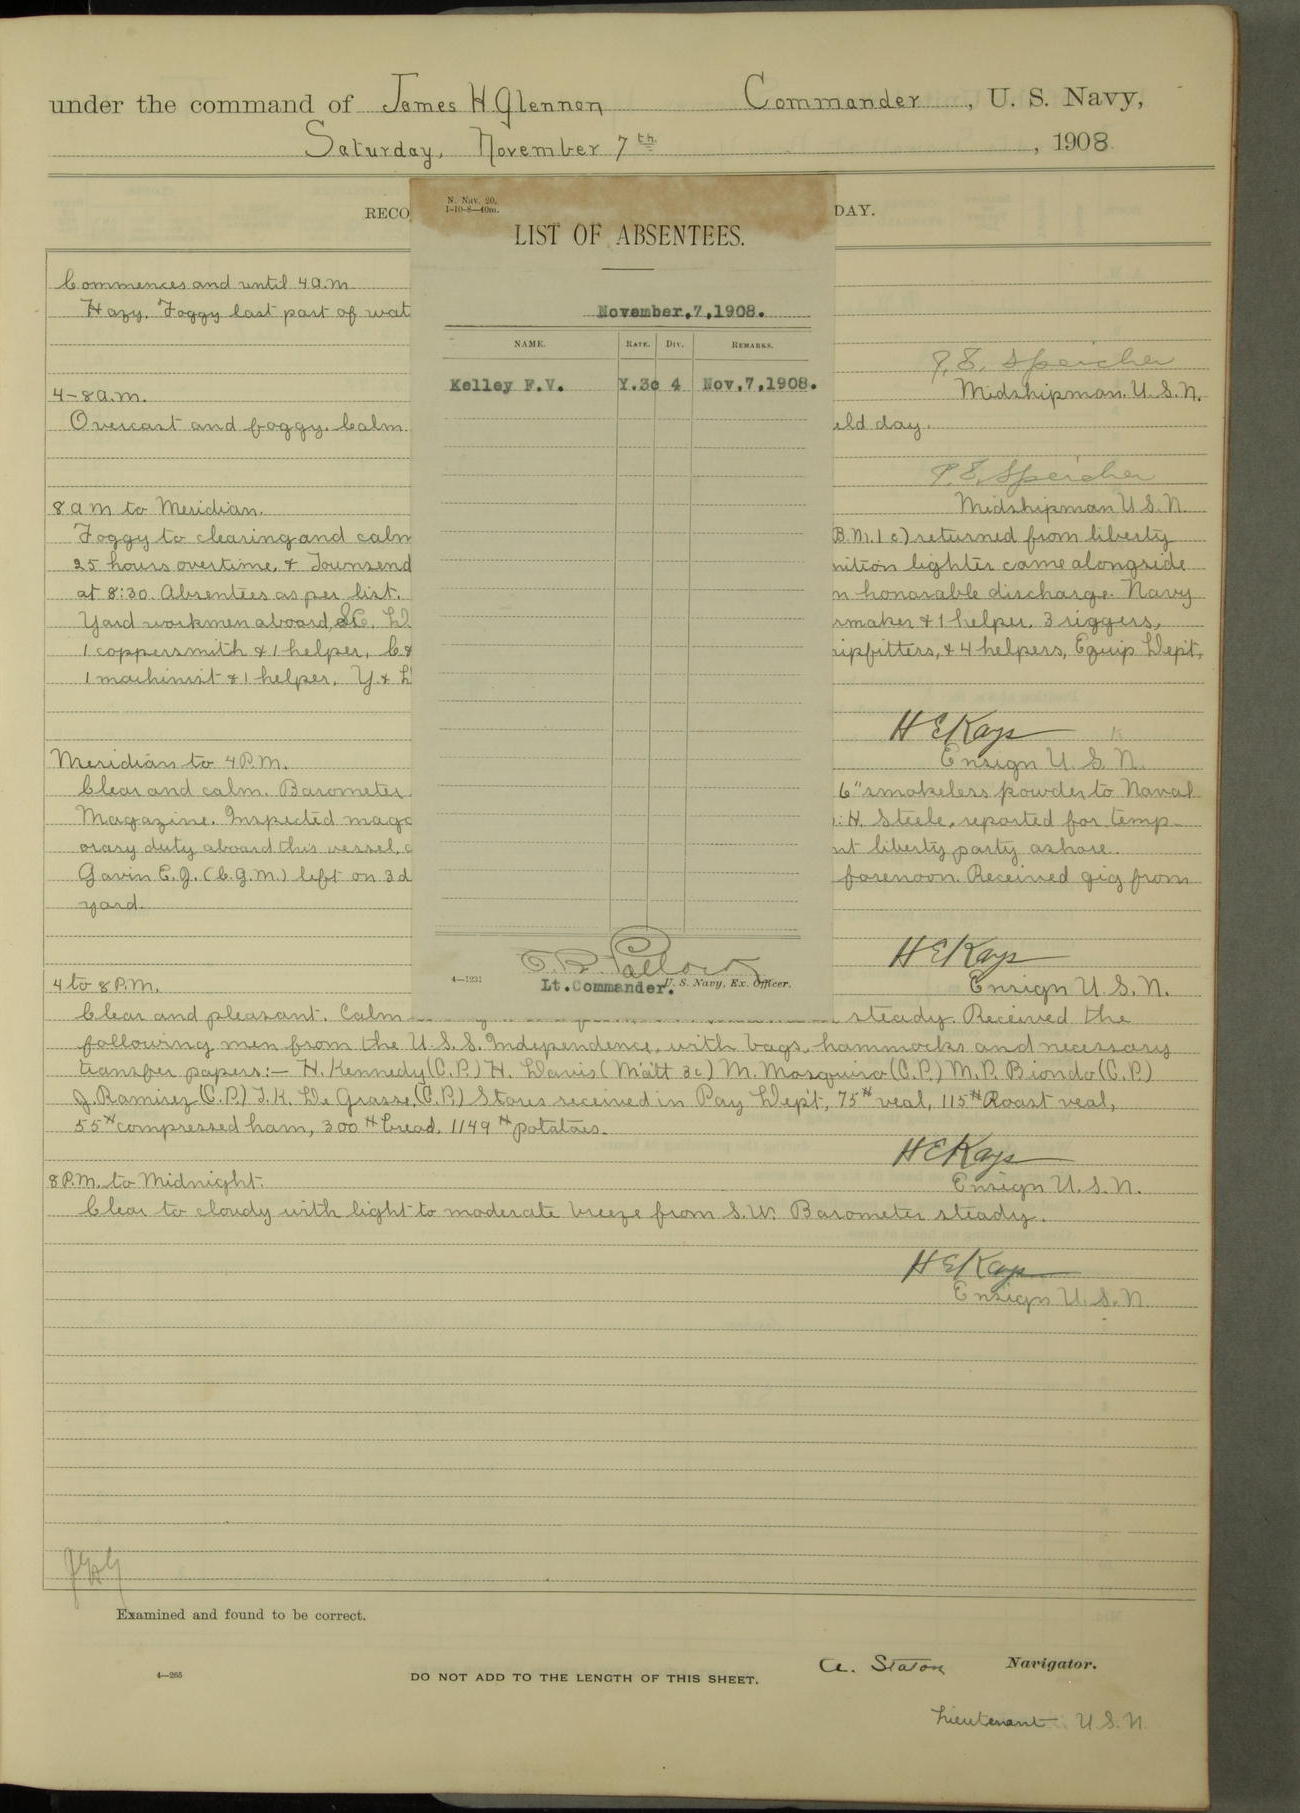 under the command of James H. Glennon Commander, U. S. Navy,
Saturday, November 7th, 1908
RECO
DAY.
N. Nav. 20.
1-10-8—40m.
LIST OF ABSENTEES.
November.7,1908.
NAME. RATE. DIV. REMARKS.
Kelley F.V. Y.3c 4 Nov,7,1908.
4—1231
Lt.Commander. U. S. Navy, Ex. Officer.
Commences and until 4 a.m.
Hazy. Foggy last part of wat
P. E. Speicher
Midshipman. U.S.N.
4-8 a.m.
Overcast and foggy. Calm. eld day.
P. E. Speicher
Midshipman U.S.N.
8 a m to Meridian.
Foggy to clearing and calm B.M.1c) returned from liberty
25 hours overtime, & Townsend nition lighter came alongside
at 8:30. Absentees as per list. n honorable discharge. Navy
Yard workmen aboard, rmaker & 1 helper. 3 riggers,
1 coppersmith & 1 helper, C& hipfitters, & 4 helpers, Equip Dept,
1 machinist & 1 helper. Y. & D
H E Kays
Ensign U.S.N.
Meridian to 4 P.M.
Clear and calm. Barometer 6" smokeless powder to Naval
Magazine. Inspected maga H. Steele, reported for temp-
orary duty aboard this vessel, nt liberty party ashore.
Gavin E.J. (C.G.M.) left on 3 d forenoon. Received gig from
yard.
H E Kays
Ensign U.S.N.
4 to 8 P.M.
Clear and pleasant. Calm steady. Received the
following men from the U.S.S. Independence, with bags, hammocks and necessary
transfer papers:— H. Kennedy (C.P.) H. Davis (Matt 3c) M. Mosquira (C.P.) M.P. Biondo (C.P.)
J. Ramirez (C.P.) I.K. De Grasse, (C.P.) Stores received in Pay Dep't, 75# veal, 115# Roast veal,
55# compressed ham, 300# bread, 1149# potatoes.
H E Kays
Ensign U.S.N.
8 P.M. to Midnight.
Clear to cloudy with light to moderate breeze from S.W. Barometer steady.
H E Kays
Ensign U.S.N.
Examined and found to be correct.
4—265
DO NOT ADD TO THE LENGTH OF THIS SHEET.
A. Staton Navigator.
Lieutenant U.S.N.